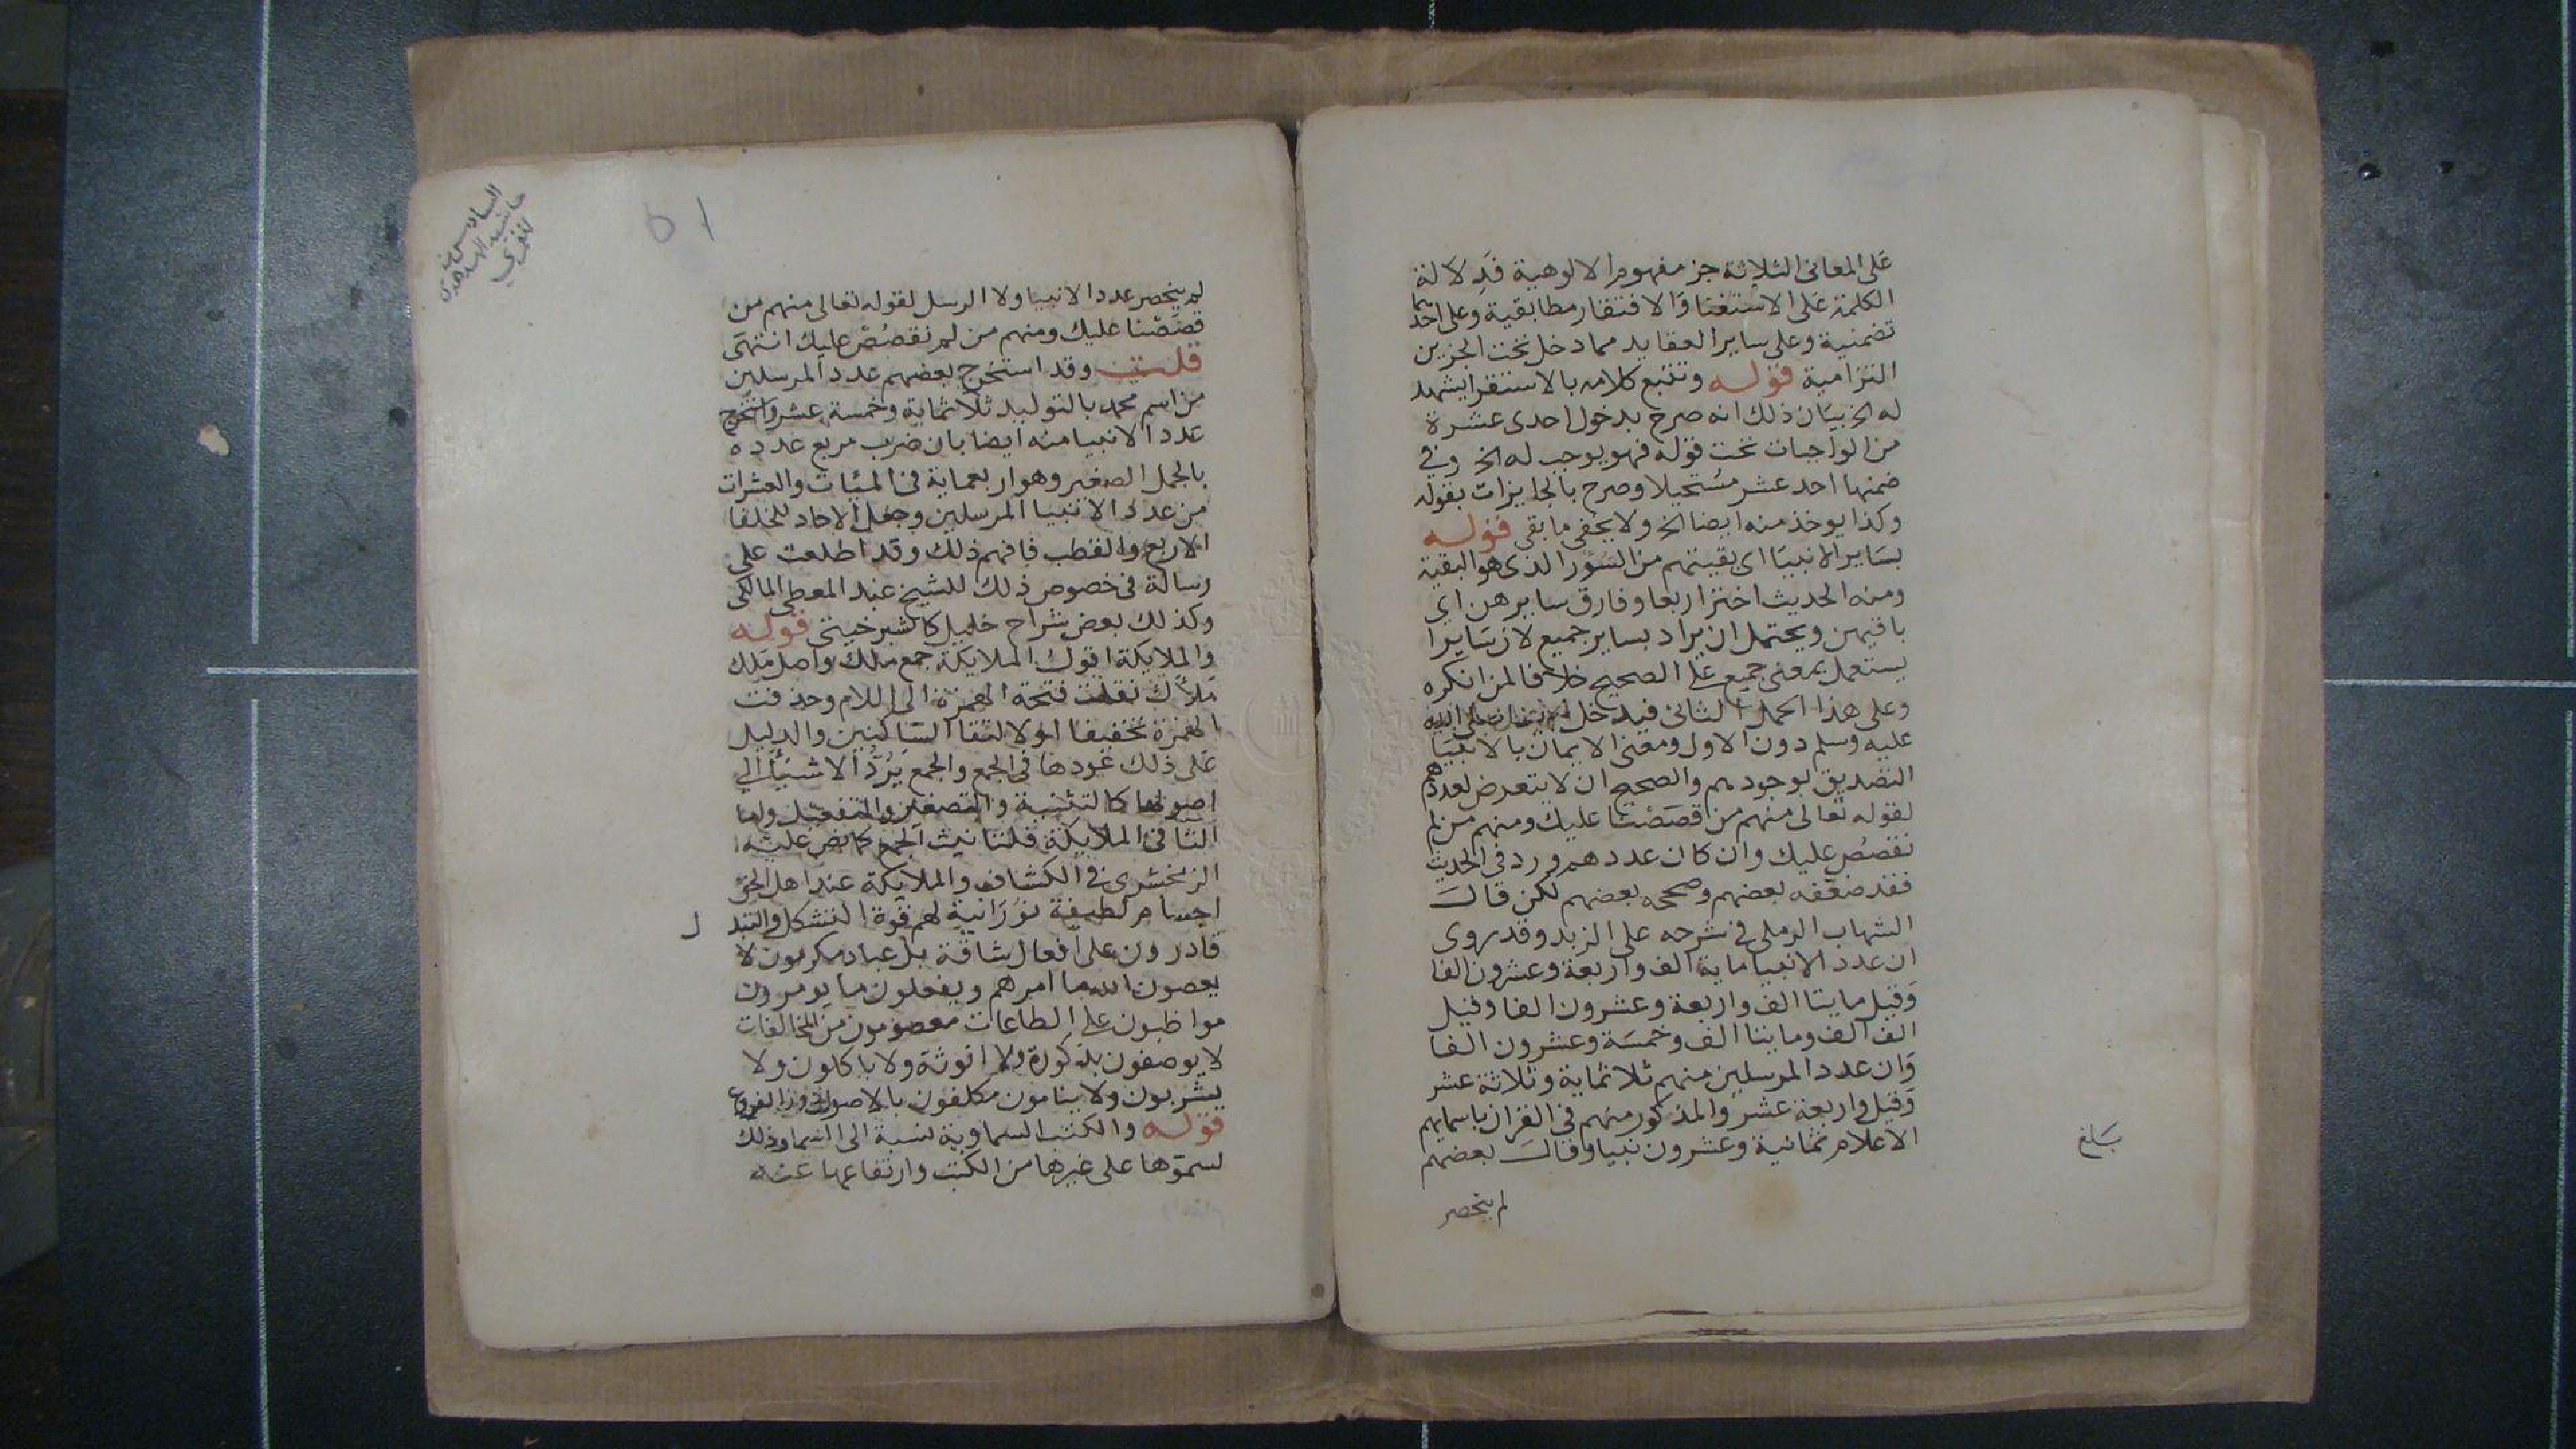 على المعانى الثلاثة جز مفهوم الالوهية فدلالة
الكلمة على الاستغنا والافتقار مطابقية وعلى احدهما
تضمنية وعلى ساير العقايد مما دخل تحت الجزين
التزامية قوله وتتبع كلامه بالاستقرا يشهد
له الخ بيان ذلك انه صرح بدخول احدى عشرة
من الواجبات تحت قوله فهو يوجب له الخ وفي
ضمنها احد عشر مستحيلا وصرح بالجايزات بقوله
وكذا يوخذ منه ايضا الخ ولا يخفى ما بقى قوله
بساير الانبيا اى بقيتهم من السؤر الذى هو البقية
ومنه الحديث اختر اربعا وفارق سايرهن اي
باقيهن ويحتمل ان يراد بساير جميع لان سايرا
يستعمل بمعنى جميع على الصحيح خلافا لمن انكره
وعلى هذا الحمل الثانى فيدخل
عليه وسلم دون الاول ومعنى الايمان بالانبيا
التصديق بوجودهم والصحيح ان لا يتعرض لعددهم
لقوله تعالى منهم من قصصنا عليك ومنهم من لم
نقصص عليك وان كان عددهم ورد في الحديث
فقد ضعفه بعضهم وصححه بعضهم لكن قال
الشهاب الرملى في شرحه على الزبد وقد روى
ان عدد الانبيا ماية الف واربعة وعشرون الفا
وقيل مايتا الف واربعة وعشرون الفا وقيل
الف الف ومايتا الف وخمسة وعشرون الفا
وان عدد المرسلين منهم ثلاثماية وثلاثة عشر
وقيل واربعة عشر والمذكور منهم في القران باسمايهم
الاعلام ثمانية وعشرون نبيا وقال بعضهم
بلغ
لم ينحصر
السادس من
حاشية الهدهدي
51
لم ينحصر عدد الانبيا ولا الرسل لقوله تعالى منهم من
قصصنا عليك ومنهم من لم نقصص عليك انتهى
قلت وقد استخرج بعضهم عدد المرسلين
من اسم محمد بالتوليد ثلاثماية وخمسة عشر واستخرج
عدد الانبيا منه ايضا بان ضرب مربع عدده
بالجمل الصغير وهو اربعماية في الميات والعشرات
من عدد الانبيا المرسلين وجعل الاحاد للخلفا
الاربع والقطب فافهم ذلك وقد اطلعت على
رسالة في خصوص ذلك للشيخ عبد المعطى المالكى
وكذلك بعض شراح خليل كالشبرخيتى قوله
والملايكة اقول الملايكة جمع ملك واصل ملك
ملاك نقلت فتحة الهمزة الى اللام وحذفت
الهمزة تخفيفا او لالتقا الساكنين والدليل
على ذلك عودها في الجمع والجمع يرد الاشيا الي
اصولها كالتثنية والتصغير والتفعيل واما
التا في الملايكة فلتانيث الجمع كما نص عليه
الزمخشرى في الكشاف والملايكة عند اهل الحق
اجسام لطيفة نورانية لهم قوة التشكل والتبدل
قادرون على افعال شاقة بل عباد مكرمون لا
يعصون الله ما امرهم ويفعلون ما يومرون
مواظبون على الطاعات معصومون من المخالفات
لا يوصفون بذكورة ولا انوثة ولا ياكلون ولا
يشربون ولا ينامون مكلفون بالاصول دون الفروع
قوله والكتب السماوية نسبة الى السما وذلك
لسموها على غيرها من الكتب وارتفاعها عنه